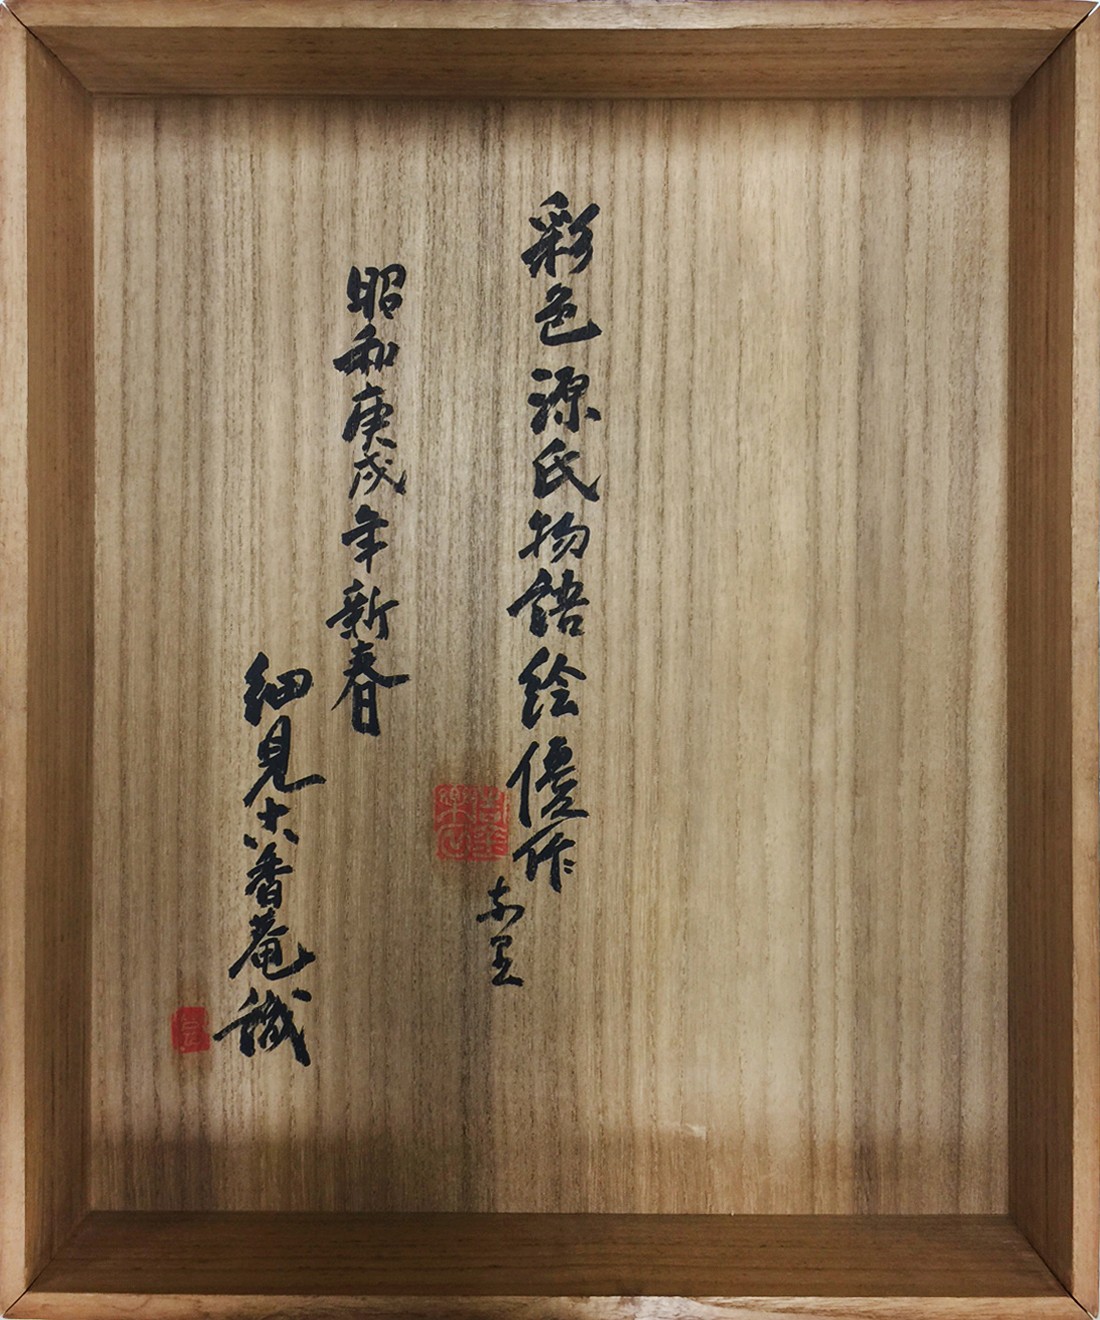 彩色源氏物語絵優作
昭和庚戌年新春
細見古香菴識